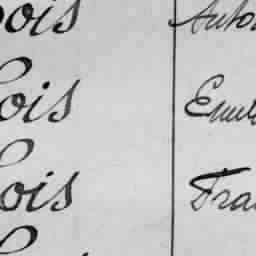 ois Anto
ois Emil
ois Fra